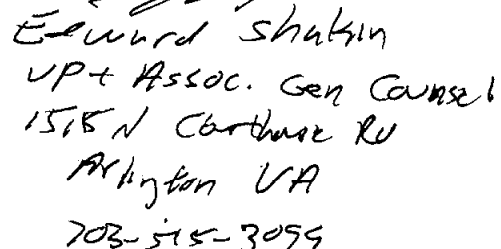 Edward Shakin
VP + Assoc. Gen Counsel
1515 N Corthouse Rd
Arlington VA
703-